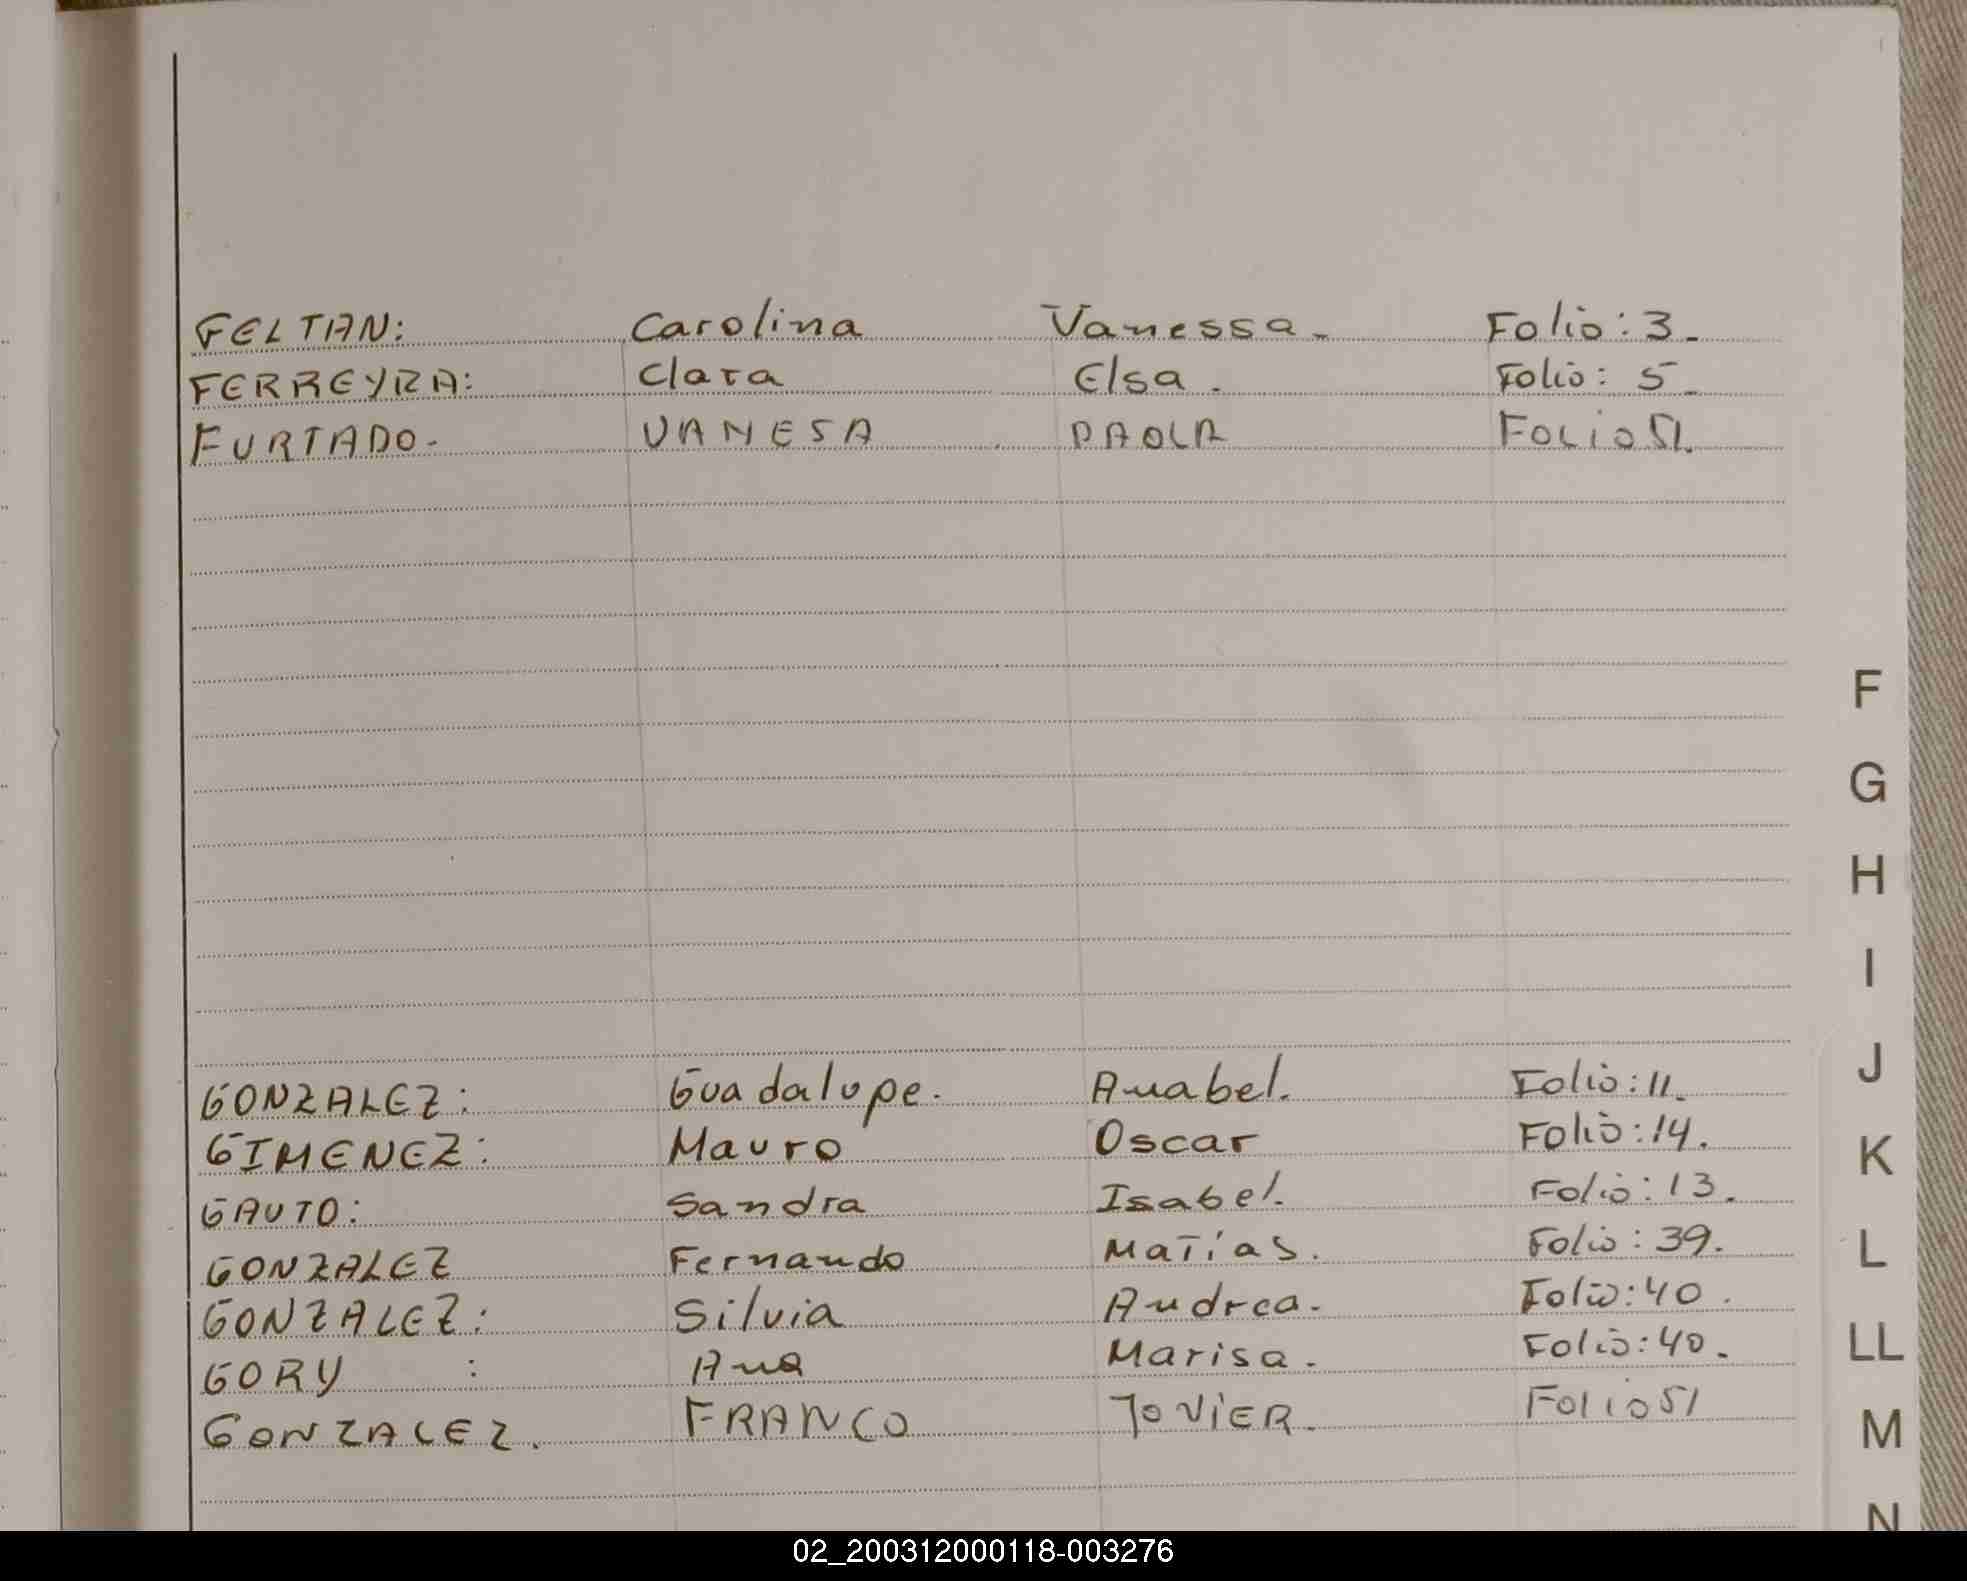 FELTAN: Carolina Vanessa. Folio: 3.
FERREYRA: Clara Elsa. Folio: 5.
FURTADO. VANESA PAOLA FOLIO 51.
F
G
H
I
GONZALEZ: Guadalupe. Anabel. Folio: 11.
J
GIMENEZ: Mauro Oscar Folio: 14.
K
GAUTO: Sandra Isabel. Folio: 13.
GONZALEZ Fernando Matías. Folio: 39.
L
GONZALEZ: Silvia Andrea. Folio: 40.
GORY : Ana Marisa. Folio: 40.
LL
GONZALEZ. FRANCO JOVIER. Folio 51
M
N
02_200312000118-003276